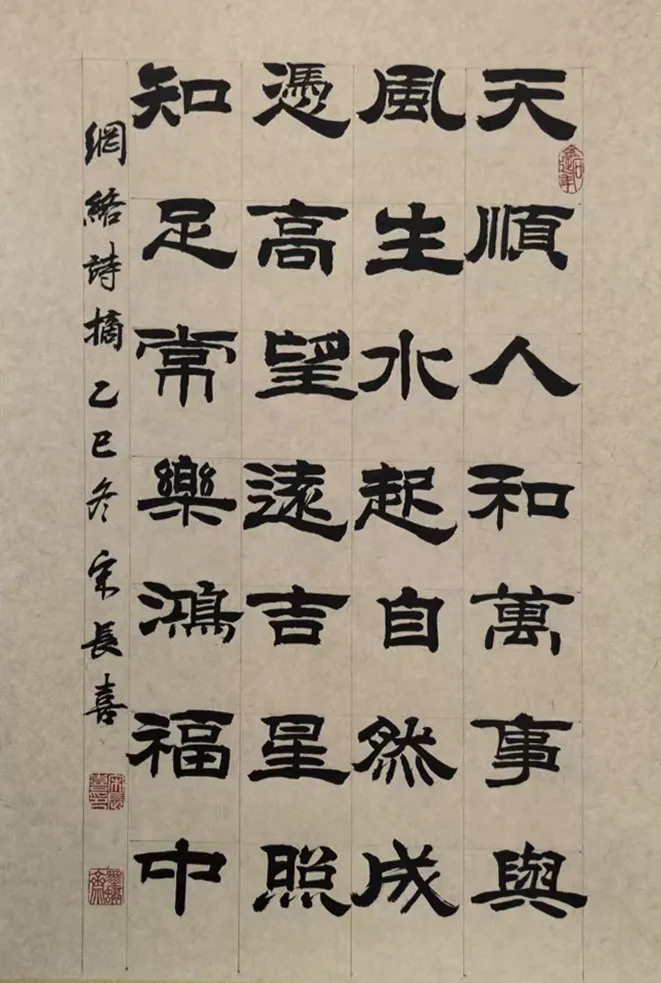 天順人和萬事與
風生水起自然成
憑高望遠吉星照
知足常樂鴻福中
網絡詩摘乙巳冬宋長喜